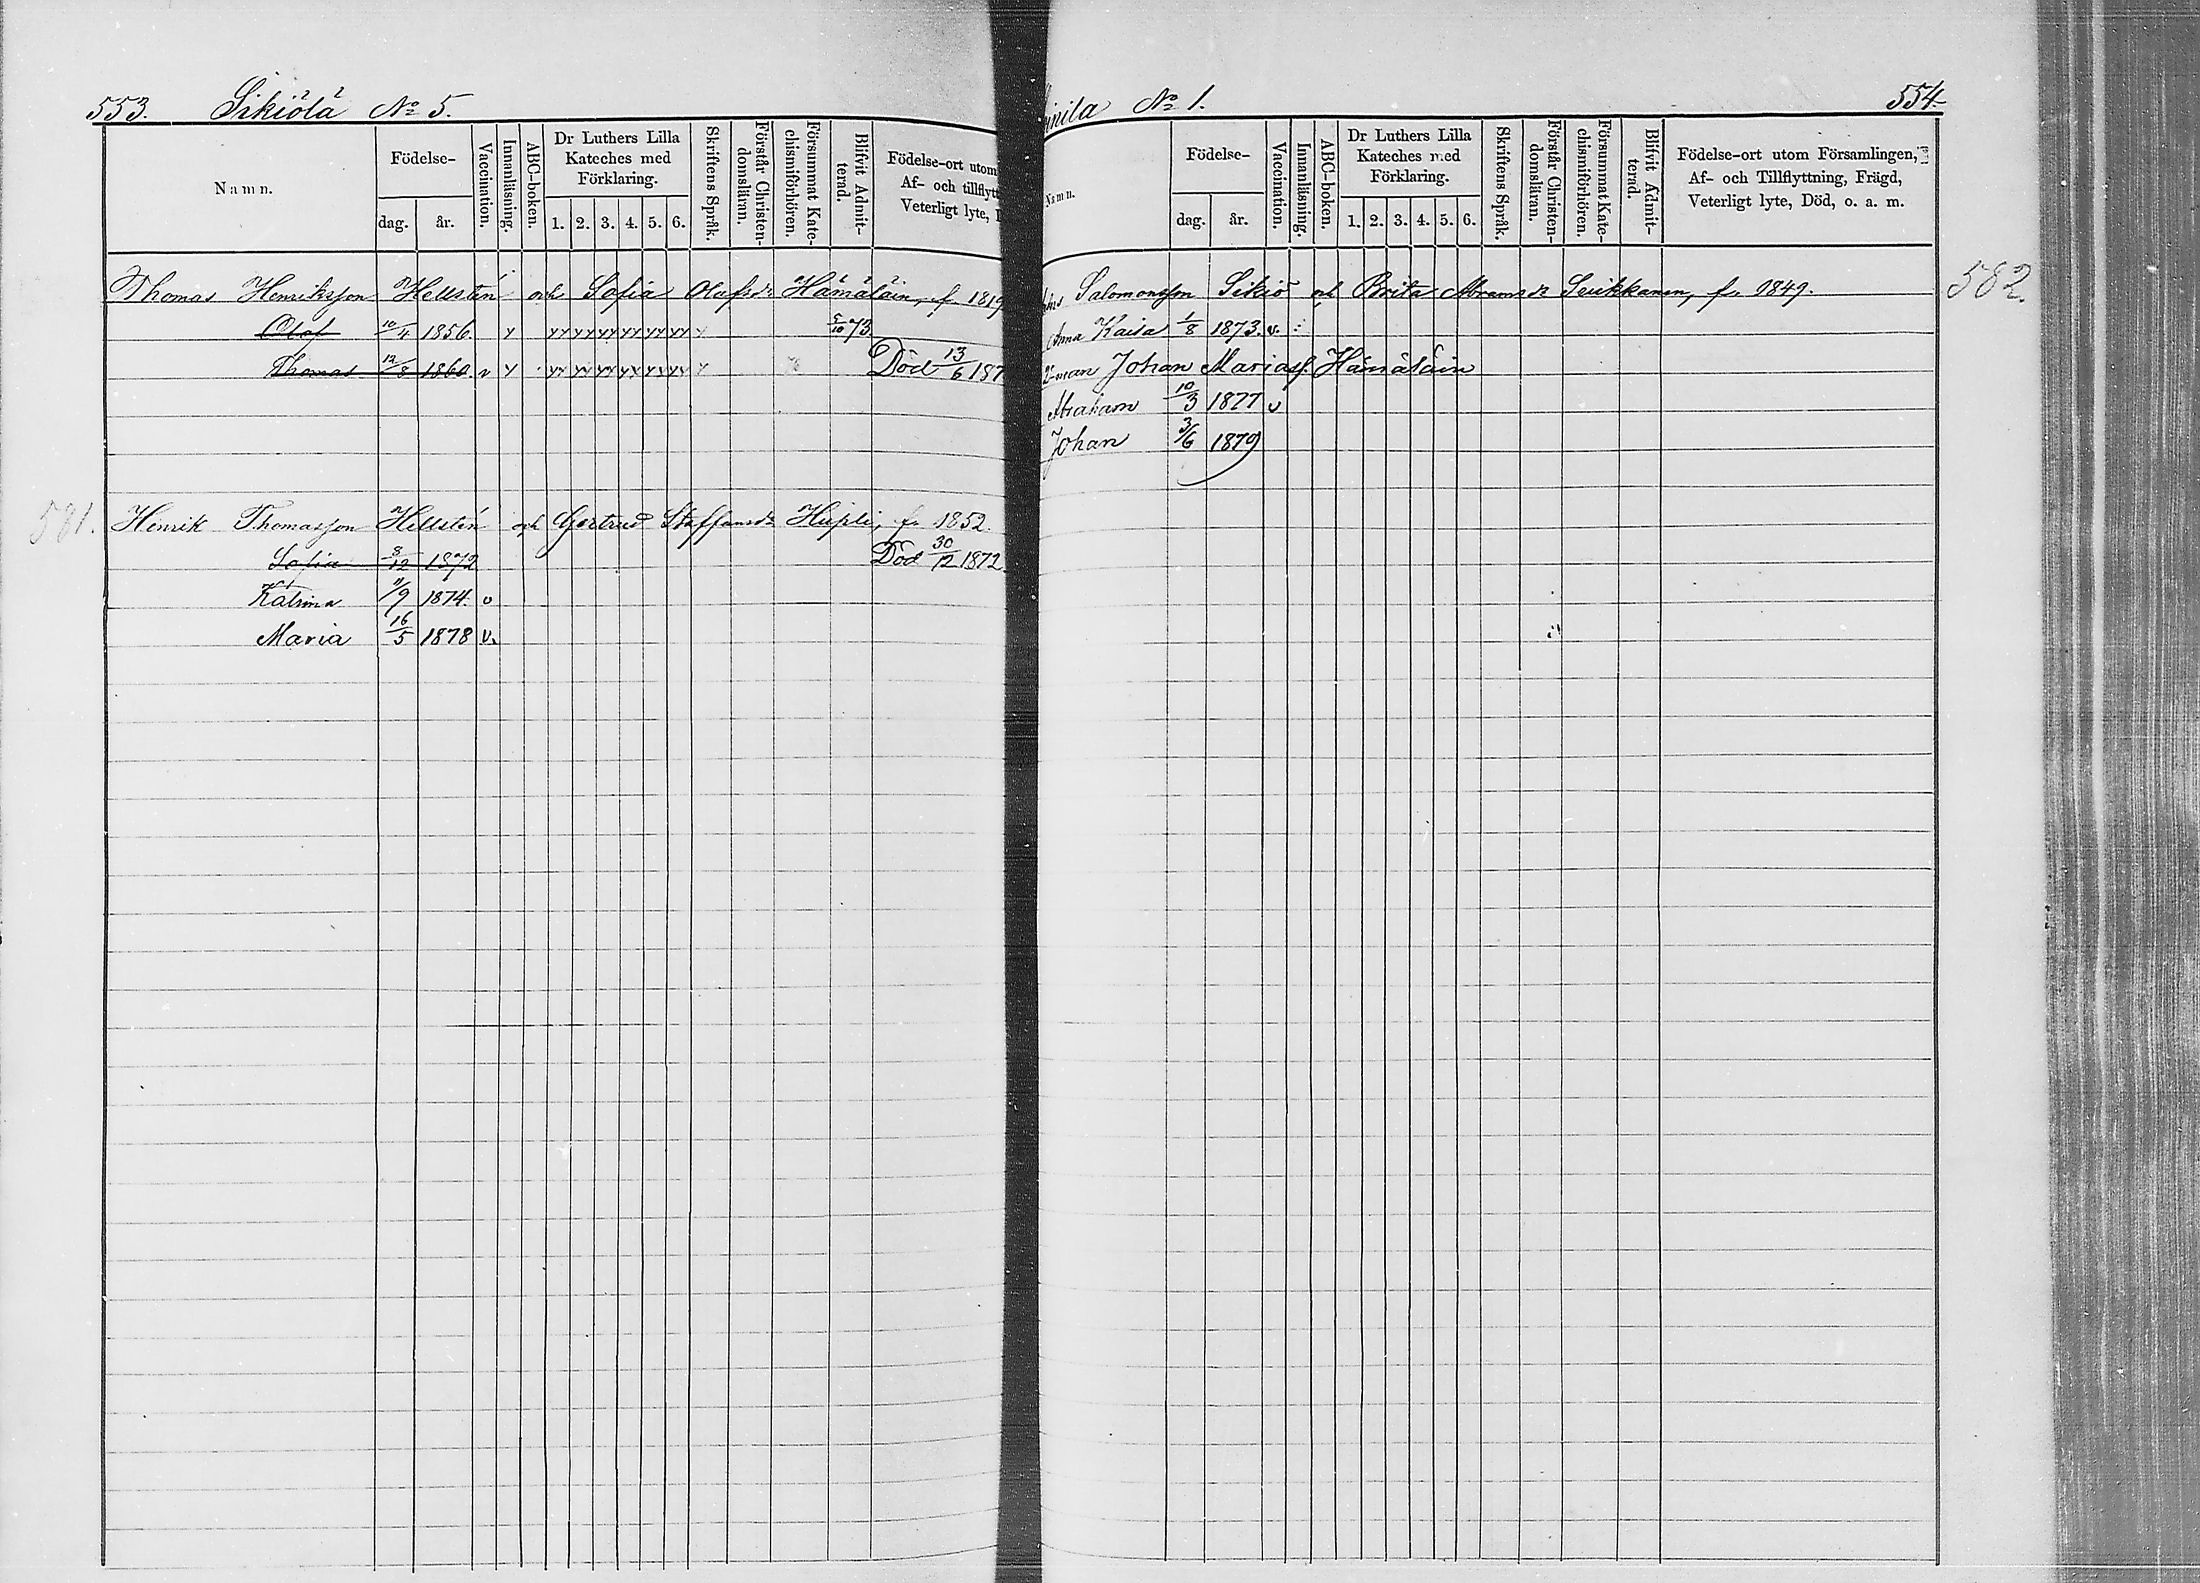 553. Sikiölä No 5.
Namn.
Födelse-
dag. år.
Vaccination.
Innanläsning.
ABC-boken.
Dr Luthers Lilla
Kateches med
Förklaring.
1. 2. 3. 4. 5. 6.
Skriftens Språk.
Förstår Christen-
domsläran.
Försummat Kate-
chismiförhören.
Blifvit Admit-
terad.
Födelse-ort utom
Af- och tillflytt
Veterligt lyte,
Thomas Henriksson Hellstén och Sofia Olafsdr Hämäläin, f. 1819
Olof 10/4 1856. y yy yy yy yy yy yy y 5/10 73
Thomas 12/8 1860. v y yy yy yy yy yy yy y Död 13/6 187
581. Henrik Thomasson Hellstén och Gertrud Staffansdr Hupli, f. 1852.
Sofia 8/12 1872 Död 30/12 1872.
Katrina 11/9 1874. v
Maria 16/5 1878 v.
nila No 1. 554.
Namn.
Födelse-
dag. år.
Vaccination.
Innanläsning.
ABC-boken.
Dr Luthers Lilla
Kateches med
Förklaring.
1. 2. 3. 4. 5. 6.
Skriftens Språk.
Förstår Christen-
domsläran.
Försummat Kate-
chismiförhören.
Blifvit Admit-
terad.
Födelse-ort utom Församlingen,
Af- och Tillflyttning, Frägd,
Veterligt lyte, Död, o. a. m.
Salomonsson Sikiö och Brita Abramsdr Seukkanen, f. 1849. 582.
Anna Kaisa 1/8 1873. v.
2-man Johan Mariass. Hämäläin
Abraham 10/3 1877 v
Johan 3/6 1879